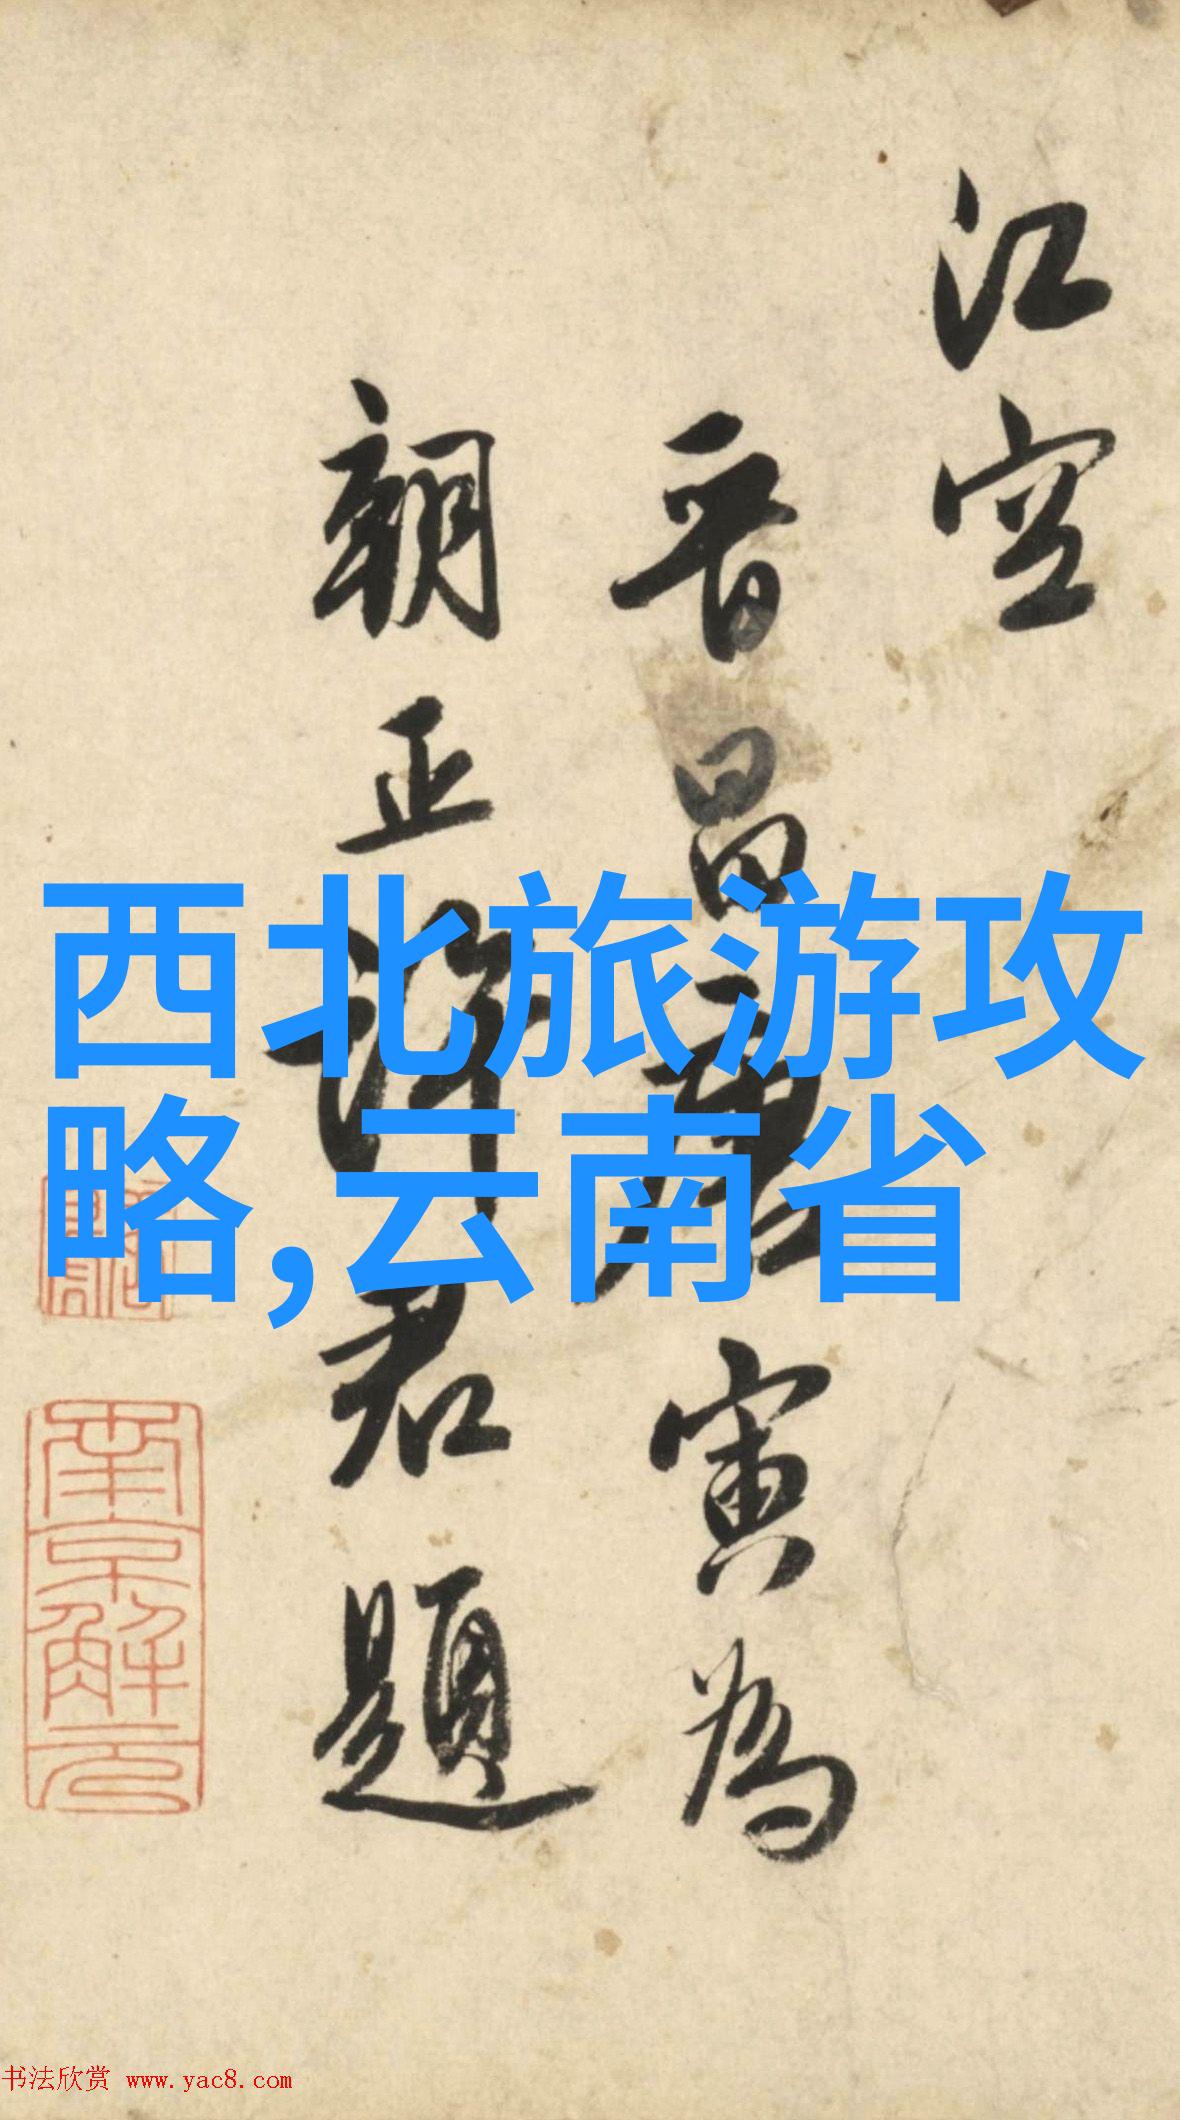 江空
晋昌唐寅為
朝正許君題
西北旅游攻
略,云南省
南京解元
书法欣赏 www.yac8.com